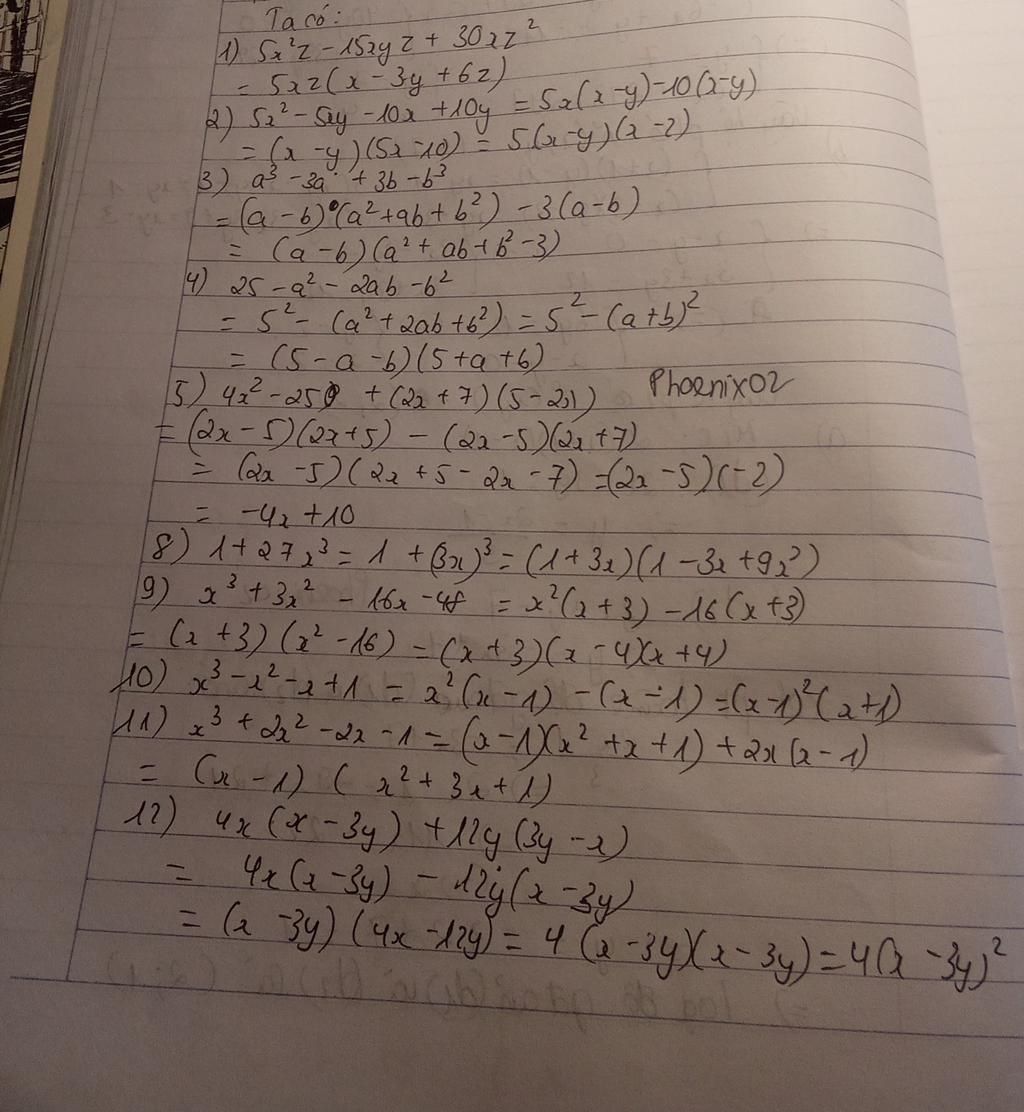 Ta có:
1) 5x²z - 15xyz + 30xz²
= 5xz(x - 3y + 6z)
2) 5x² - 5xy - 10x + 10y = 5x(x-y) - 10(x-y)
= (x-y)(5x-10) = 5(x-y)(x-2)
3) a³ - 3a + 3b - b³
= (a-b)(a²+ab+b²) - 3(a-b)
= (a-b)(a²+ab+b²-3)
4) 25 - a² - 2ab - b²
= 5² - (a²+2ab+b²) = 5² - (a+b)²
= (5-a-b)(5+a+b)
5) 4x² - 25 + (2x+7)(5-2x)
Phoenix02
= (2x-5)(2x+5) - (2x-5)(2x+7)
= (2x-5)(2x+5-2x-7) = (2x-5)(-2)
= -4x+10
8) 1+27x³ = 1+(3x)³ = (1+3x)(1-3x+9x²)
9) x³+3x² - 16x - 48 = x²(x+3) - 16(x+3)
= (x+3)(x²-16) = (x+3)(x-4)(x+4)
10) x³-x²-x+1 = x²(x-1) - (x-1) = (x-1)²(x+1)
11) x³+2x²-2x-1 = (x-1)(x²+x+1) + 2x(x-1)
= (x-1)(x²+3x+1)
12) 4x(x-3y) + 12y(3y-x)
= 4x(x-3y) - 12y(x-3y)
= (x-3y)(4x-12y) = 4(x-3y)(x-3y) = 4(x-3y)²